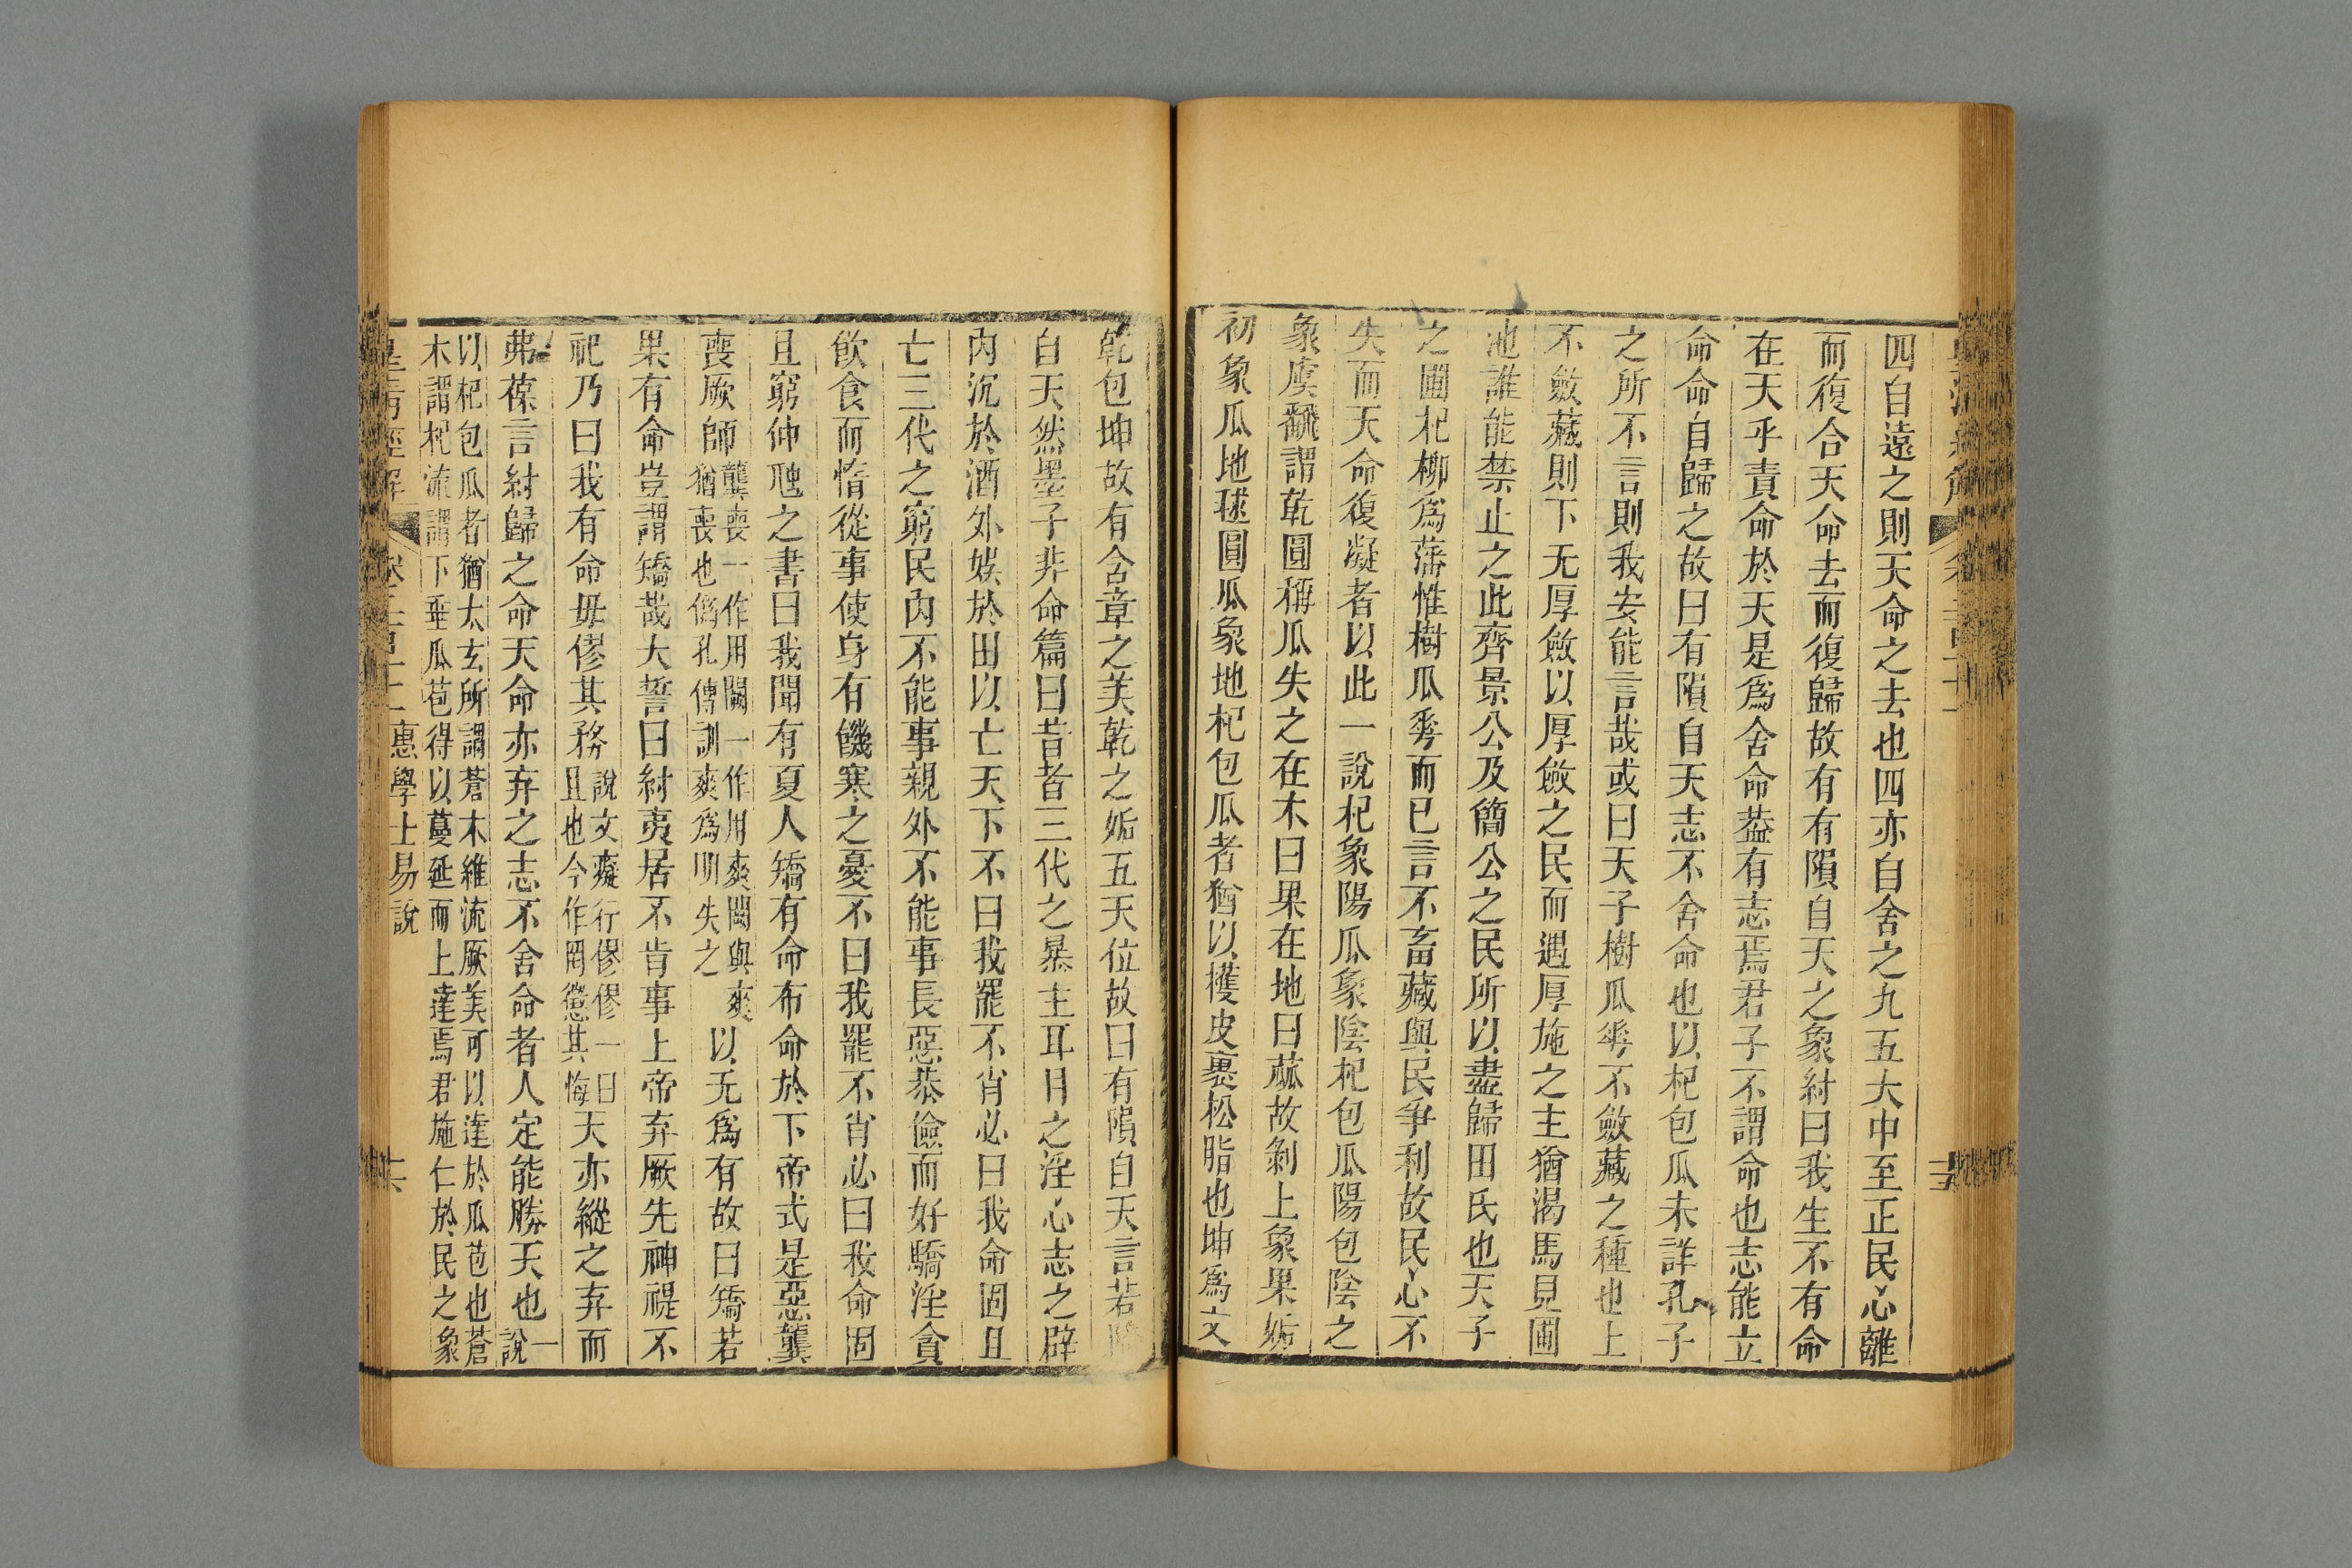 四自遠之則天命之去也四亦自舍之九五大中至正民心離
而復合天命去而復歸故有有隕自天之象紂曰我生不有命
在天乎責命於天是爲舍命葢有志焉君子不謂命也志能立
命命自歸之故曰有隕自天志不舍命也以杞包瓜未詳孔子
之所不言則我安能言哉或曰天子樹瓜華不斂藏之種也上
不斂藏則下无厚斂以厚斂之民而遇厚施之主猶渴馬見圃
池誰能禁止之此齊景公及簡公之民所以盡歸田氏也天子
之圃杞柳爲藩惟樹瓜華而已言不畜藏與民爭利故民心不
失而天命復凝者以此一說杞象陽瓜象陰杞包瓜陽包陰之
象虞飜謂乾圓稱瓜失之在木曰果在地曰蓏故剝上象果姤
初象瓜地毬圓瓜象地杞包瓜者猶以擭皮裹松脂也坤爲文
乾包坤故有含章之美乾之姤五天位故曰有隕自天言若
自天然墨子非命篇曰昔者三代之暴主耳目之淫心志之辟
內沉於酒外娛於田以亡天下不曰我罷不肖必曰我命固且
亡三代之窮民內不能事親外不能事長惡恭儉而好驕淫貪
飲食而惰從事使身有饑寒之憂不曰我罷不肖必曰我命固
且窮仲虺之書曰我聞有夏人矯有命布命於下帝式是惡龔
喪厥師龔喪一作用闕一作用爽闕與爽猶喪也僞孔傳訓爽爲明失之以无爲有故曰矯若
果有命豈謂矯哉大誓曰紂夷居不肯事上帝弃厥先神禔不
祀乃曰我有命毋僇其務說文癡行僇僇一曰且也今作罔懲其悔天亦縱之弃而
弗葆言紂歸之命天命亦弃之志不舍命者人定能勝天也一說
以杞包瓜者猶太玄所謂蒼木維流厥美可以達於瓜苞也蒼
木謂杞流謂下垂瓜苞得以蔓延而上達焉君施仁於民之象
惠學士易說